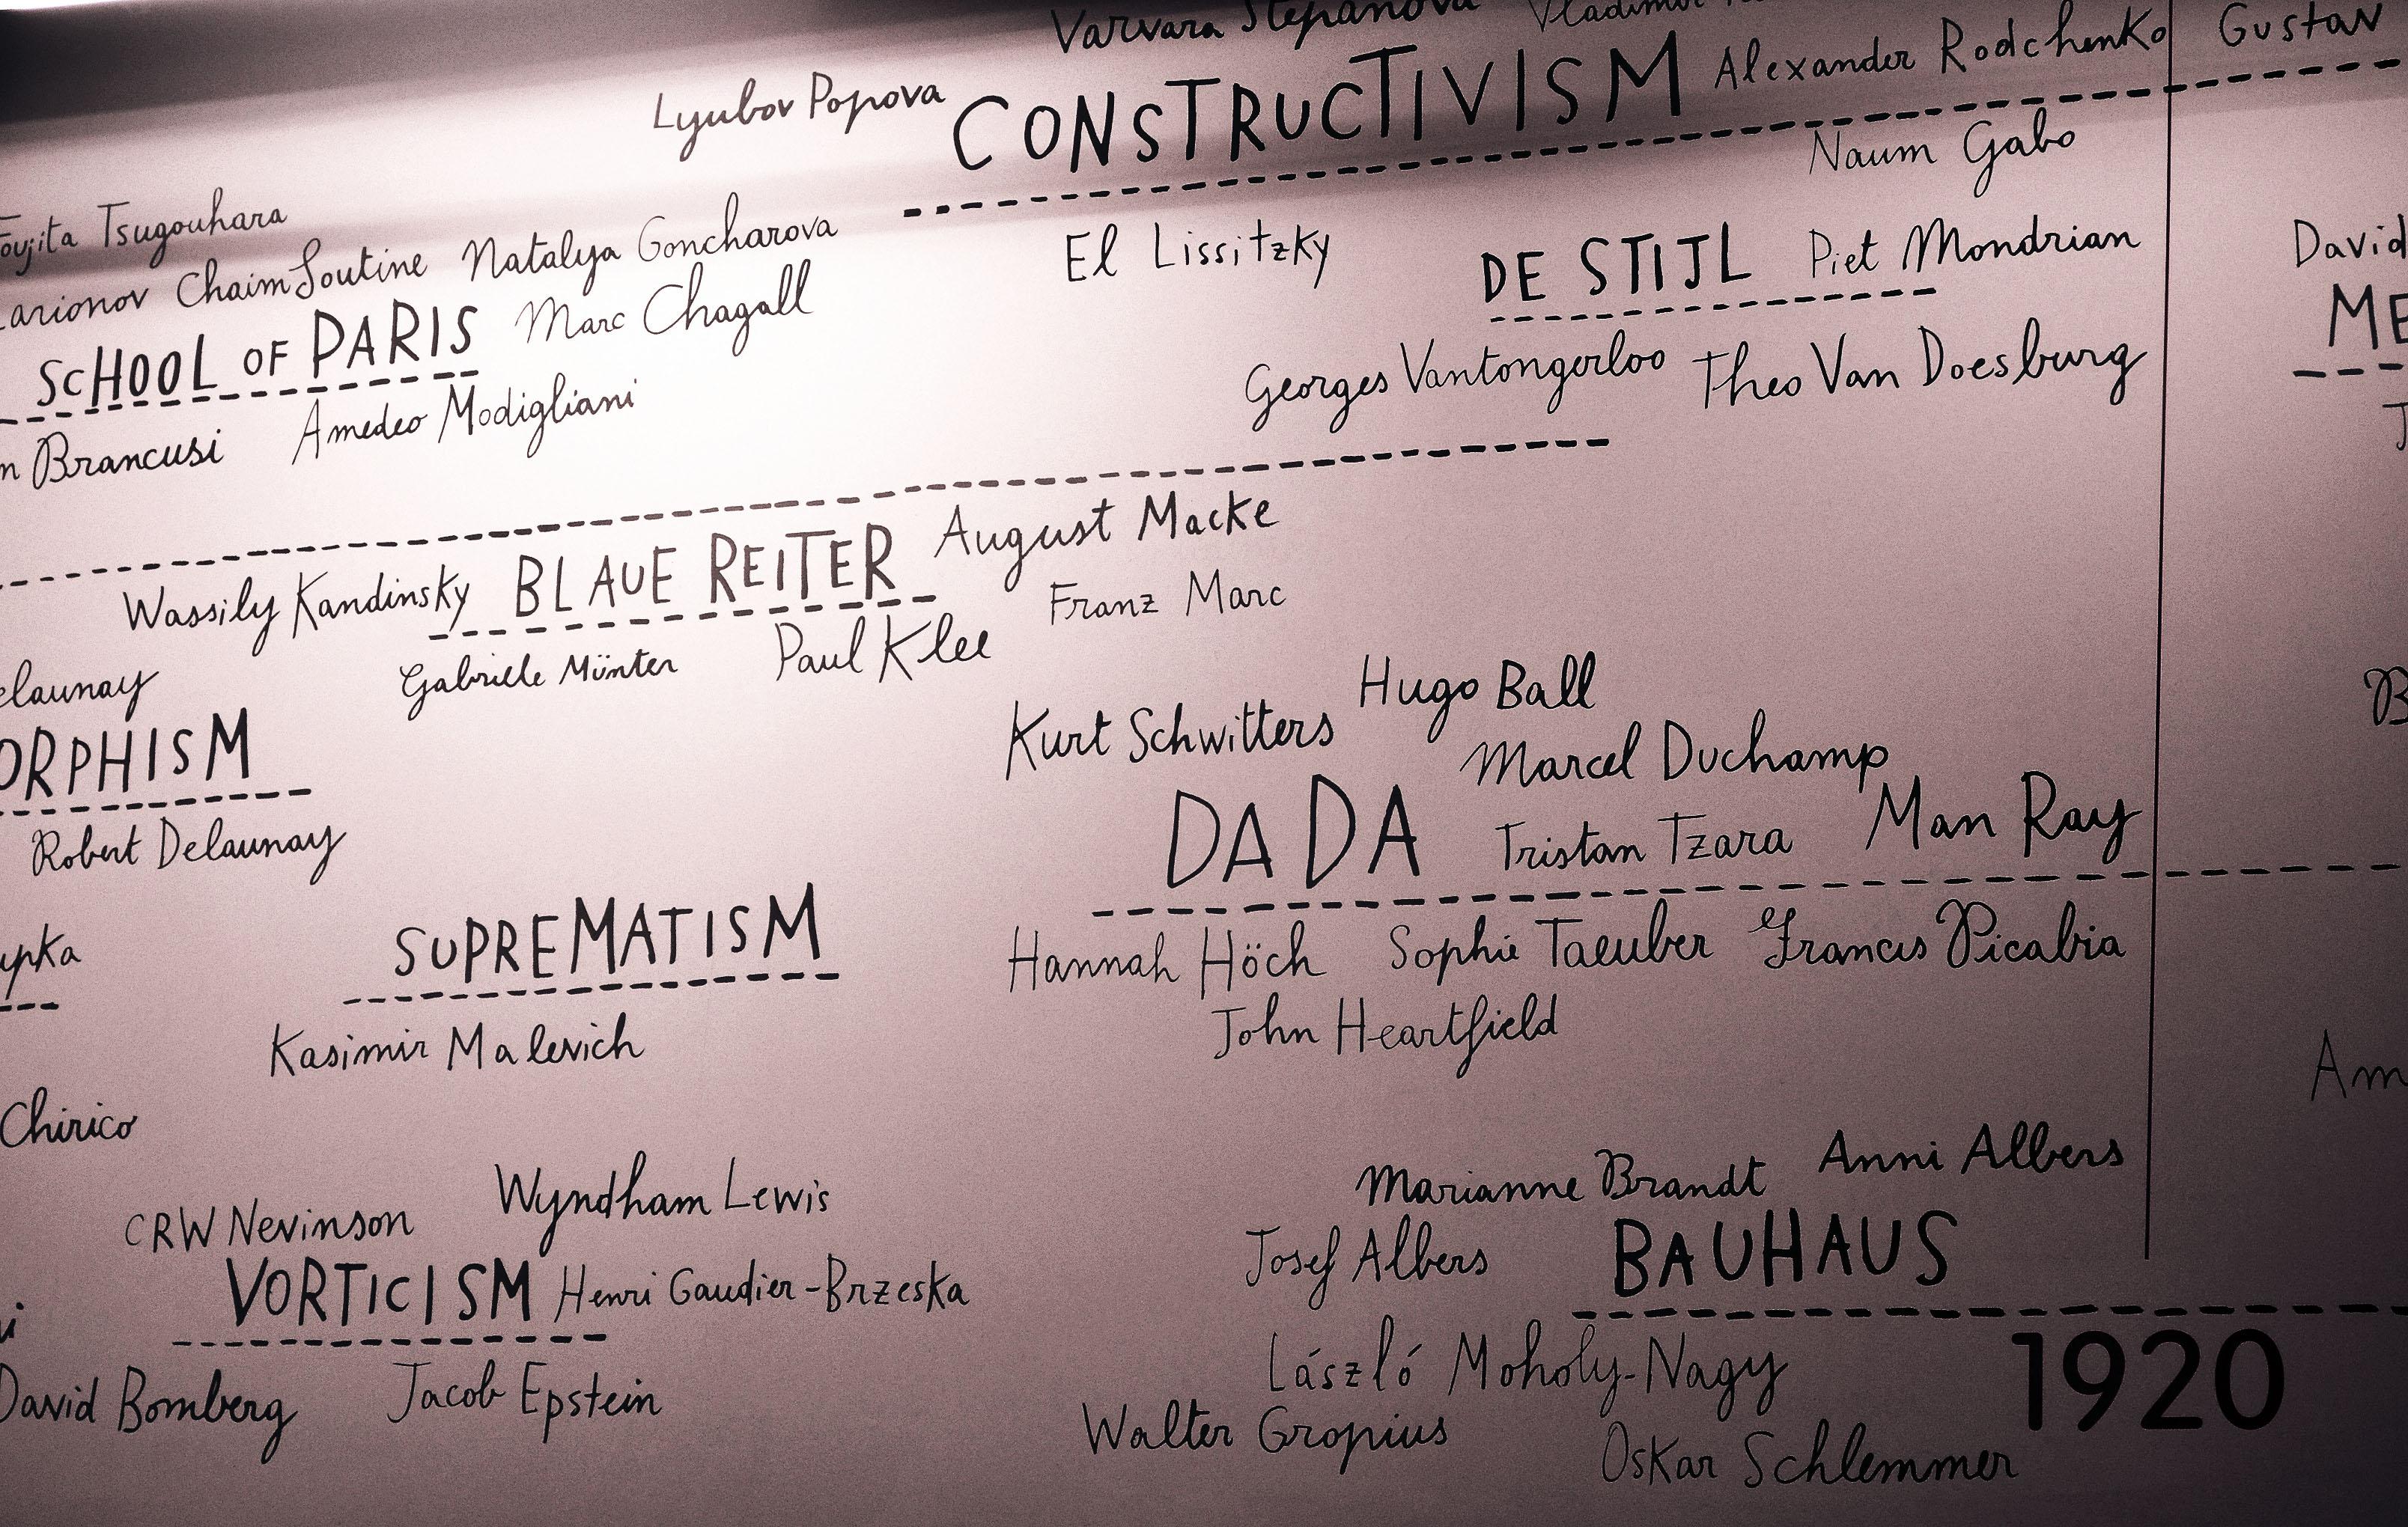 Varvara Stepanova Vladimir
Lyubov Popova CONSTRUCTIVISM Alexander Rodchenko Gustav
Naum Gabo
Foujita Tsugouhara
Larionov Chaim Soutine Natalya Goncharova
El Lissitzky DE STIJL Piet Mondrian David
SCHOOL OF PARIS Marc Chagall
Georges Vantongerloo Theo Van Doesburg
Brancusi Amedeo Modigliani
Wassily Kandinsky BLAUE REITER August Macke
Franz Marc
Gabriele Münter Paul Klee
elaunay
ORPHISM
Robert Delaunay
Kurt Schwitters Hugo Ball
Marcel Duchamp
DADA Tristan Tzara Man Ray
upka
SUPREMATISM
Hannah Höch Sophie Taeuber Francis Picabia
Kasimir Malevich
John Heartfield
Chirico
Marianne Brandt Anni Albers
CRW Nevinson Wyndham Lewis
Josef Albers BAUHAUS
VORTICISM Henri Gaudier-Brzeska
László Moholy-Nagy 1920
David Bomberg Jacob Epstein
Walter Gropius Oskar Schlemmer